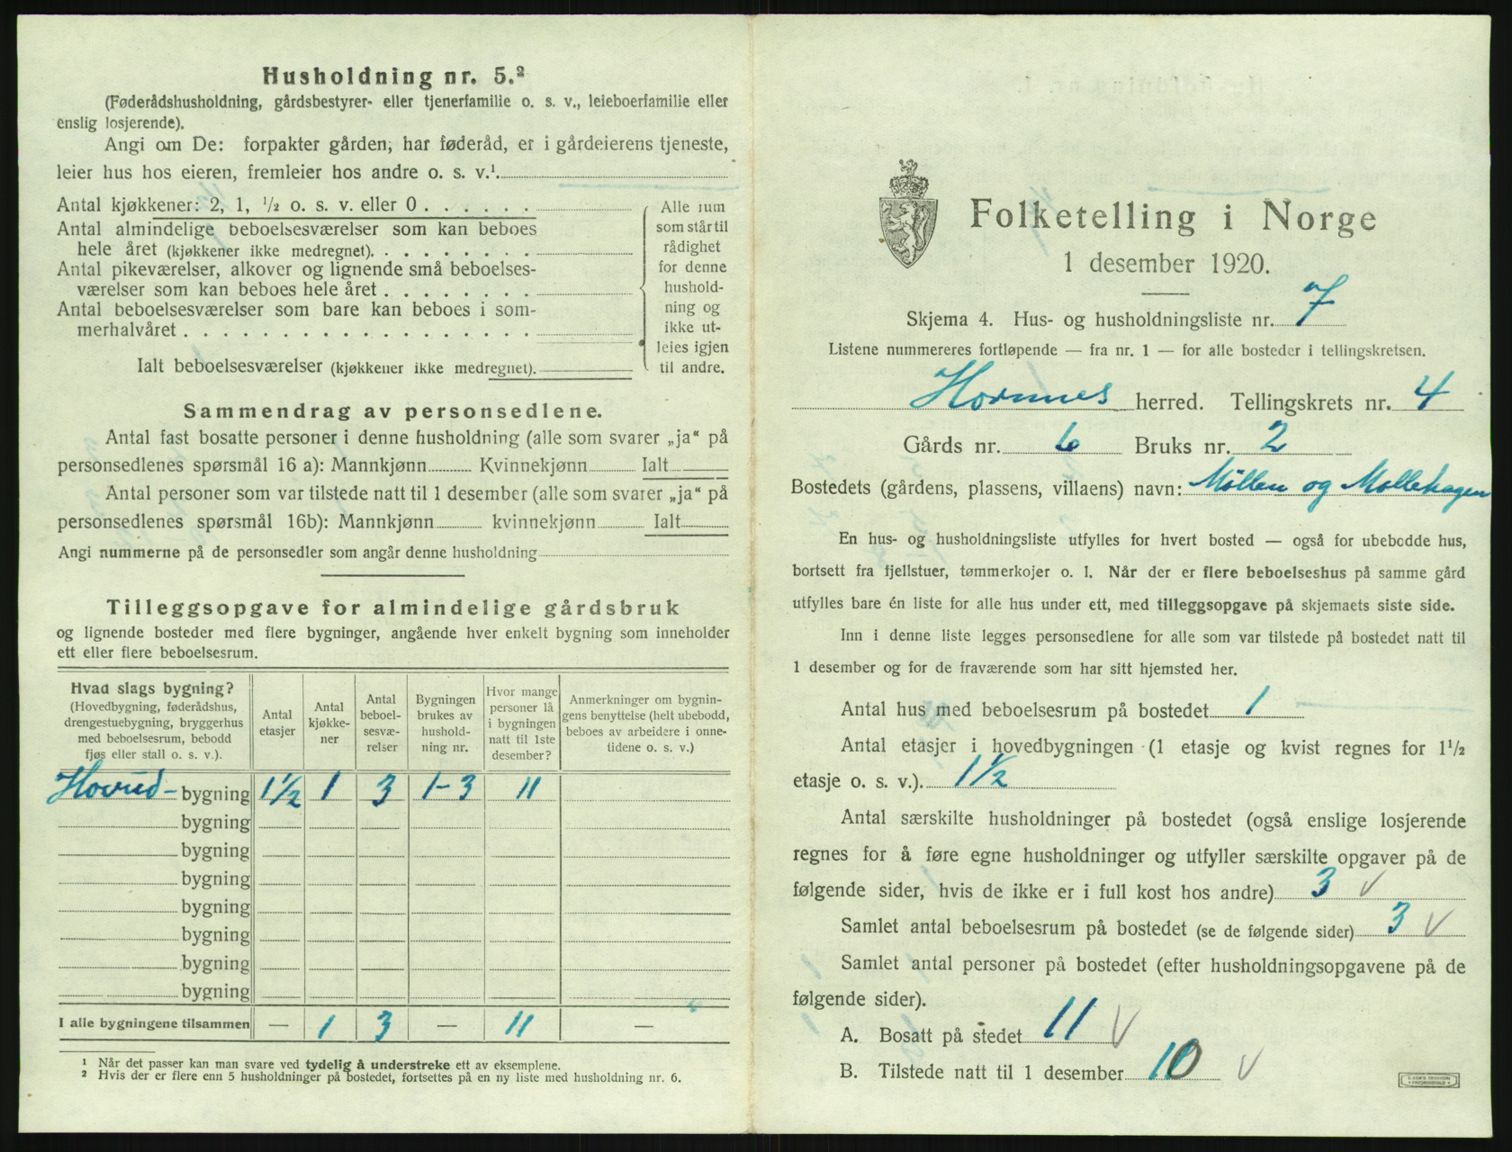 Husholdning nr. 5.²
(Føderådshusholdning, gårdsbestyrer- eller tjenerfamilie o. s. v., leieboerfamilie eller
enslig losjerende).
Angi om De: forpakter gården, har føderåd, er i gårdeierens tjeneste,
leier hus hos eieren, fremleier hos andre o. s. v.¹
Antal kjøkkener: 2, 1, ½ o. s. v. eller 0
Antal almindelige beboelsesværelser som kan beboes
hele året (kjøkkener ikke medregnet).
Antal pikeværelser, alkover og lignende små beboelses-
værelser som kan beboes hele året
Antal beboelsesværelser som bare kan beboes i som-
merhalvåret
Alle rum
som står til
rådighet
for denne
hushold-
ning og
ikke ut-
leies igjen
til andre.
Ialt beboelsesværelser (kjøkkener ikke medregnet).
Sammendrag av personsedlene.
Antal fast bosatte personer i denne husholdning (alle som svarer „ja“ på
personsedlenes spørsmål 16 a): Mannkjønn Kvinnekjønn Ialt
Antal personer som var tilstede natt til 1 desember (alle som svarer „ja“ på
personsedlenes spørsmål 16b): Mannkjønn kvinnekjønn Ialt
Angi nummerne på de personsedler som angår denne husholdning
Tilleggsopgave for almindelige gårdsbruk
og lignende bosteder med flere bygninger, angående hver enkelt bygning som inneholder
ett eller flere beboelsesrum.
Hvad slags bygning?
(Hovedbygning, føderådshus,
drengestuebygning, bryggerhus
med beboelsesrum, bebodd
fjøs eller stall o. s. v.).
Antal
etasjer
Antal
kjøkke-
ner
Antal
beboel-
sesvæ-
relser
Bygningen
brukes av
hushold-
ning nr.
Hvor mange
personer lå
i bygningen
natt til 1ste
desember?
Anmerkninger om bygnin-
gens benyttelse (helt ubebodd,
beboes av arbeidere i onne-
tidene o. s. v.)
Hovud- bygning 1½ 1 3 1-3 11
bygning
bygning
bygning
bygning
bygning
bygning
bygning
I alle bygningene tilsammen — 1 3 — 11 —
¹ Når det passer kan man svare ved tydelig å understreke ett av eksemplene.
² Hvis der er flere enn 5 husholdninger på bostedet, fortsettes på en ny liste med husholdning nr. 6.
Folketelling i Norge
1 desember 1920.
Skjema 4. Hus- og husholdningsliste nr. 7
Listene nummereres fortløpende — fra nr. 1 — for alle bosteder i tellingskretsen.
Hornnes herred. Tellingskrets nr. 4
Gårds nr. 6 Bruks nr. 2
Bostedets (gårdens, plassens, villaens) navn: Møllen og Møllehagen
En hus- og husholdningsliste utfylles for hvert bosted — også for ubebodde hus,
bortsett fra fjellstuer, tømmerkojer o. l. Når der er flere beboelseshus på samme gård
utfylles bare én liste for alle hus under ett, med tilleggsopgave på skjemaets siste side.
Inn i denne liste legges personsedlene for alle som var tilstede på bostedet natt til
1 desember og for de fraværende som har sitt hjemsted her.
Antal hus med beboelsesrum på bostedet 1
Antal etasjer i hovedbygningen (1 etasje og kvist regnes for 1½
etasje o. s. v.). 1½
Antal særskilte husholdninger på bostedet (også enslige losjerende
regnes for å føre egne husholdninger og utfyller særskilte opgaver på de
følgende sider, hvis de ikke er i full kost hos andre) 3 √
Samlet antal beboelsesrum på bostedet (se de følgende sider) 3 √
Samlet antal personer på bostedet (efter husholdningsopgavene på de
følgende sider).
A. Bosatt på stedet 11 √
B. Tilstede natt til 1 desember 10 √